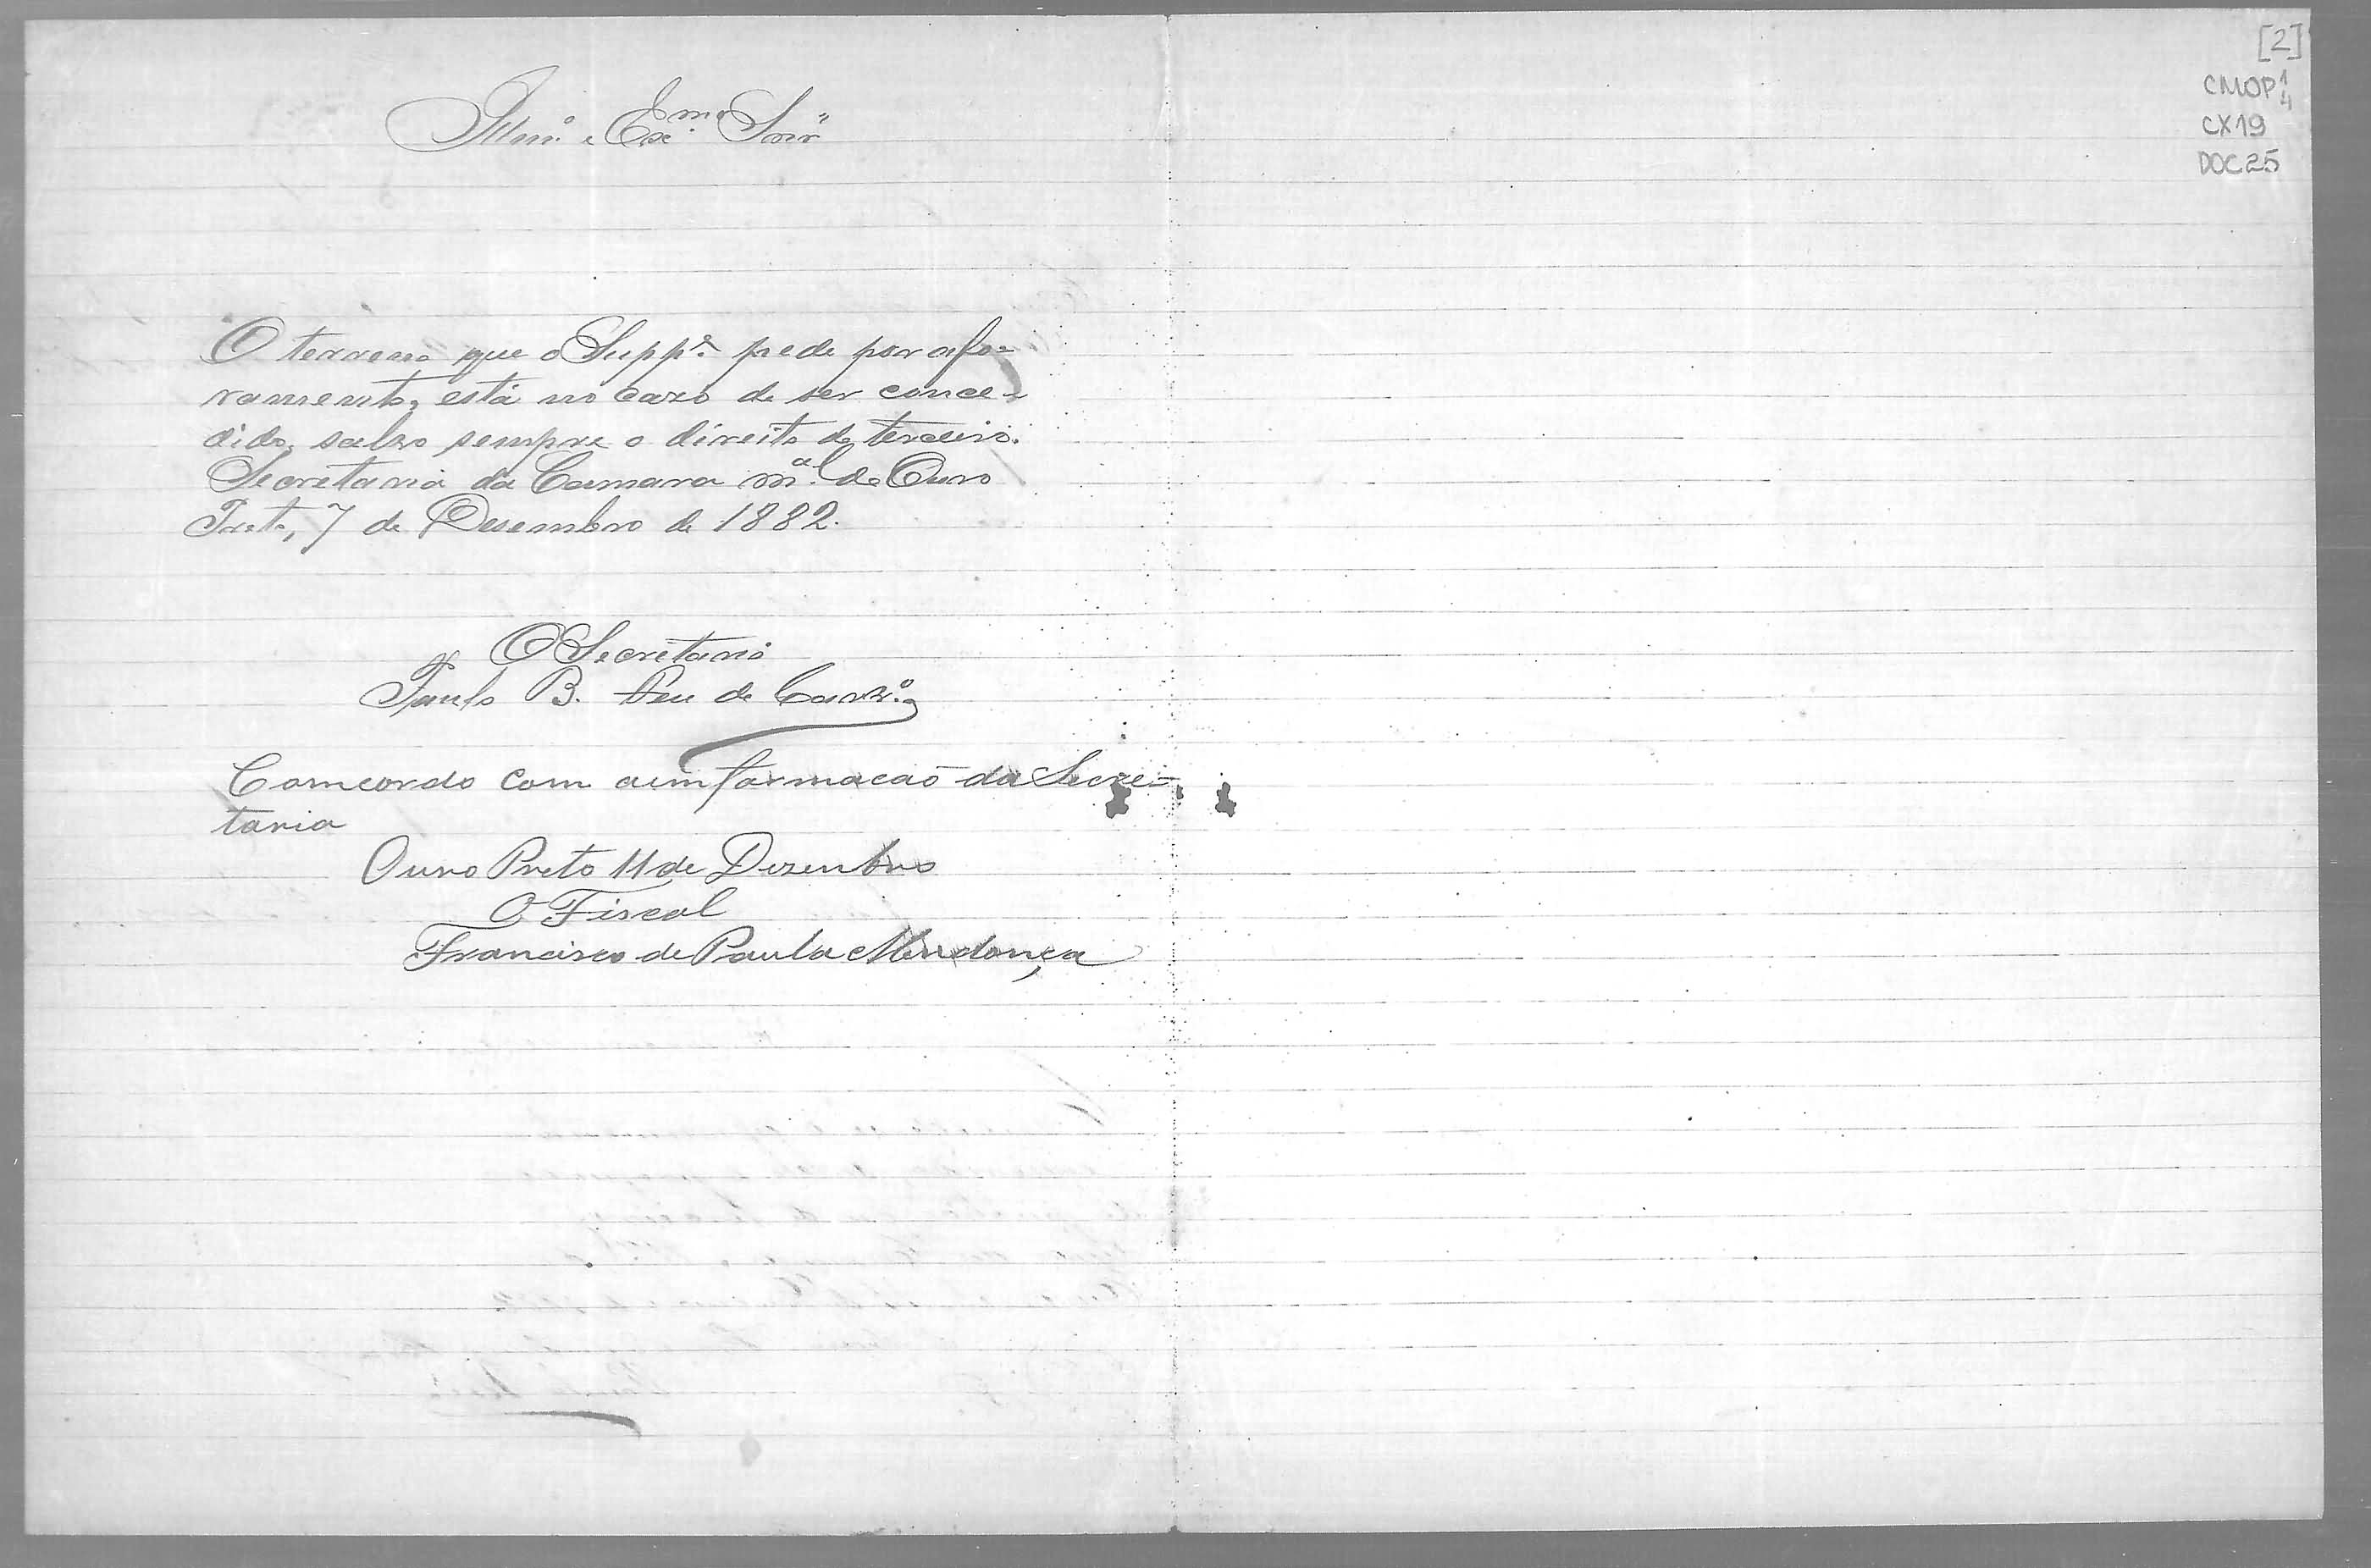 [2]
CMOP 1/4
CX19
DOC 25
Illm.º e Ex.mo Snr.
O terreno que o Supp.e pede por afo-
ramento, está no cazo de ser conce-
dido, salvo sempre o direito de terceiro.
Secretaria da Camara m.al de Ouro
Preto, 7 de Desembro de 1882.
O Secretario
Paulo B. de Carv.º
Comcordo com a imformacaõ da Secre-
taria
Ouro Preto 11 de Dezenbro
O Fiscal
Francisco de Paula Mendonça